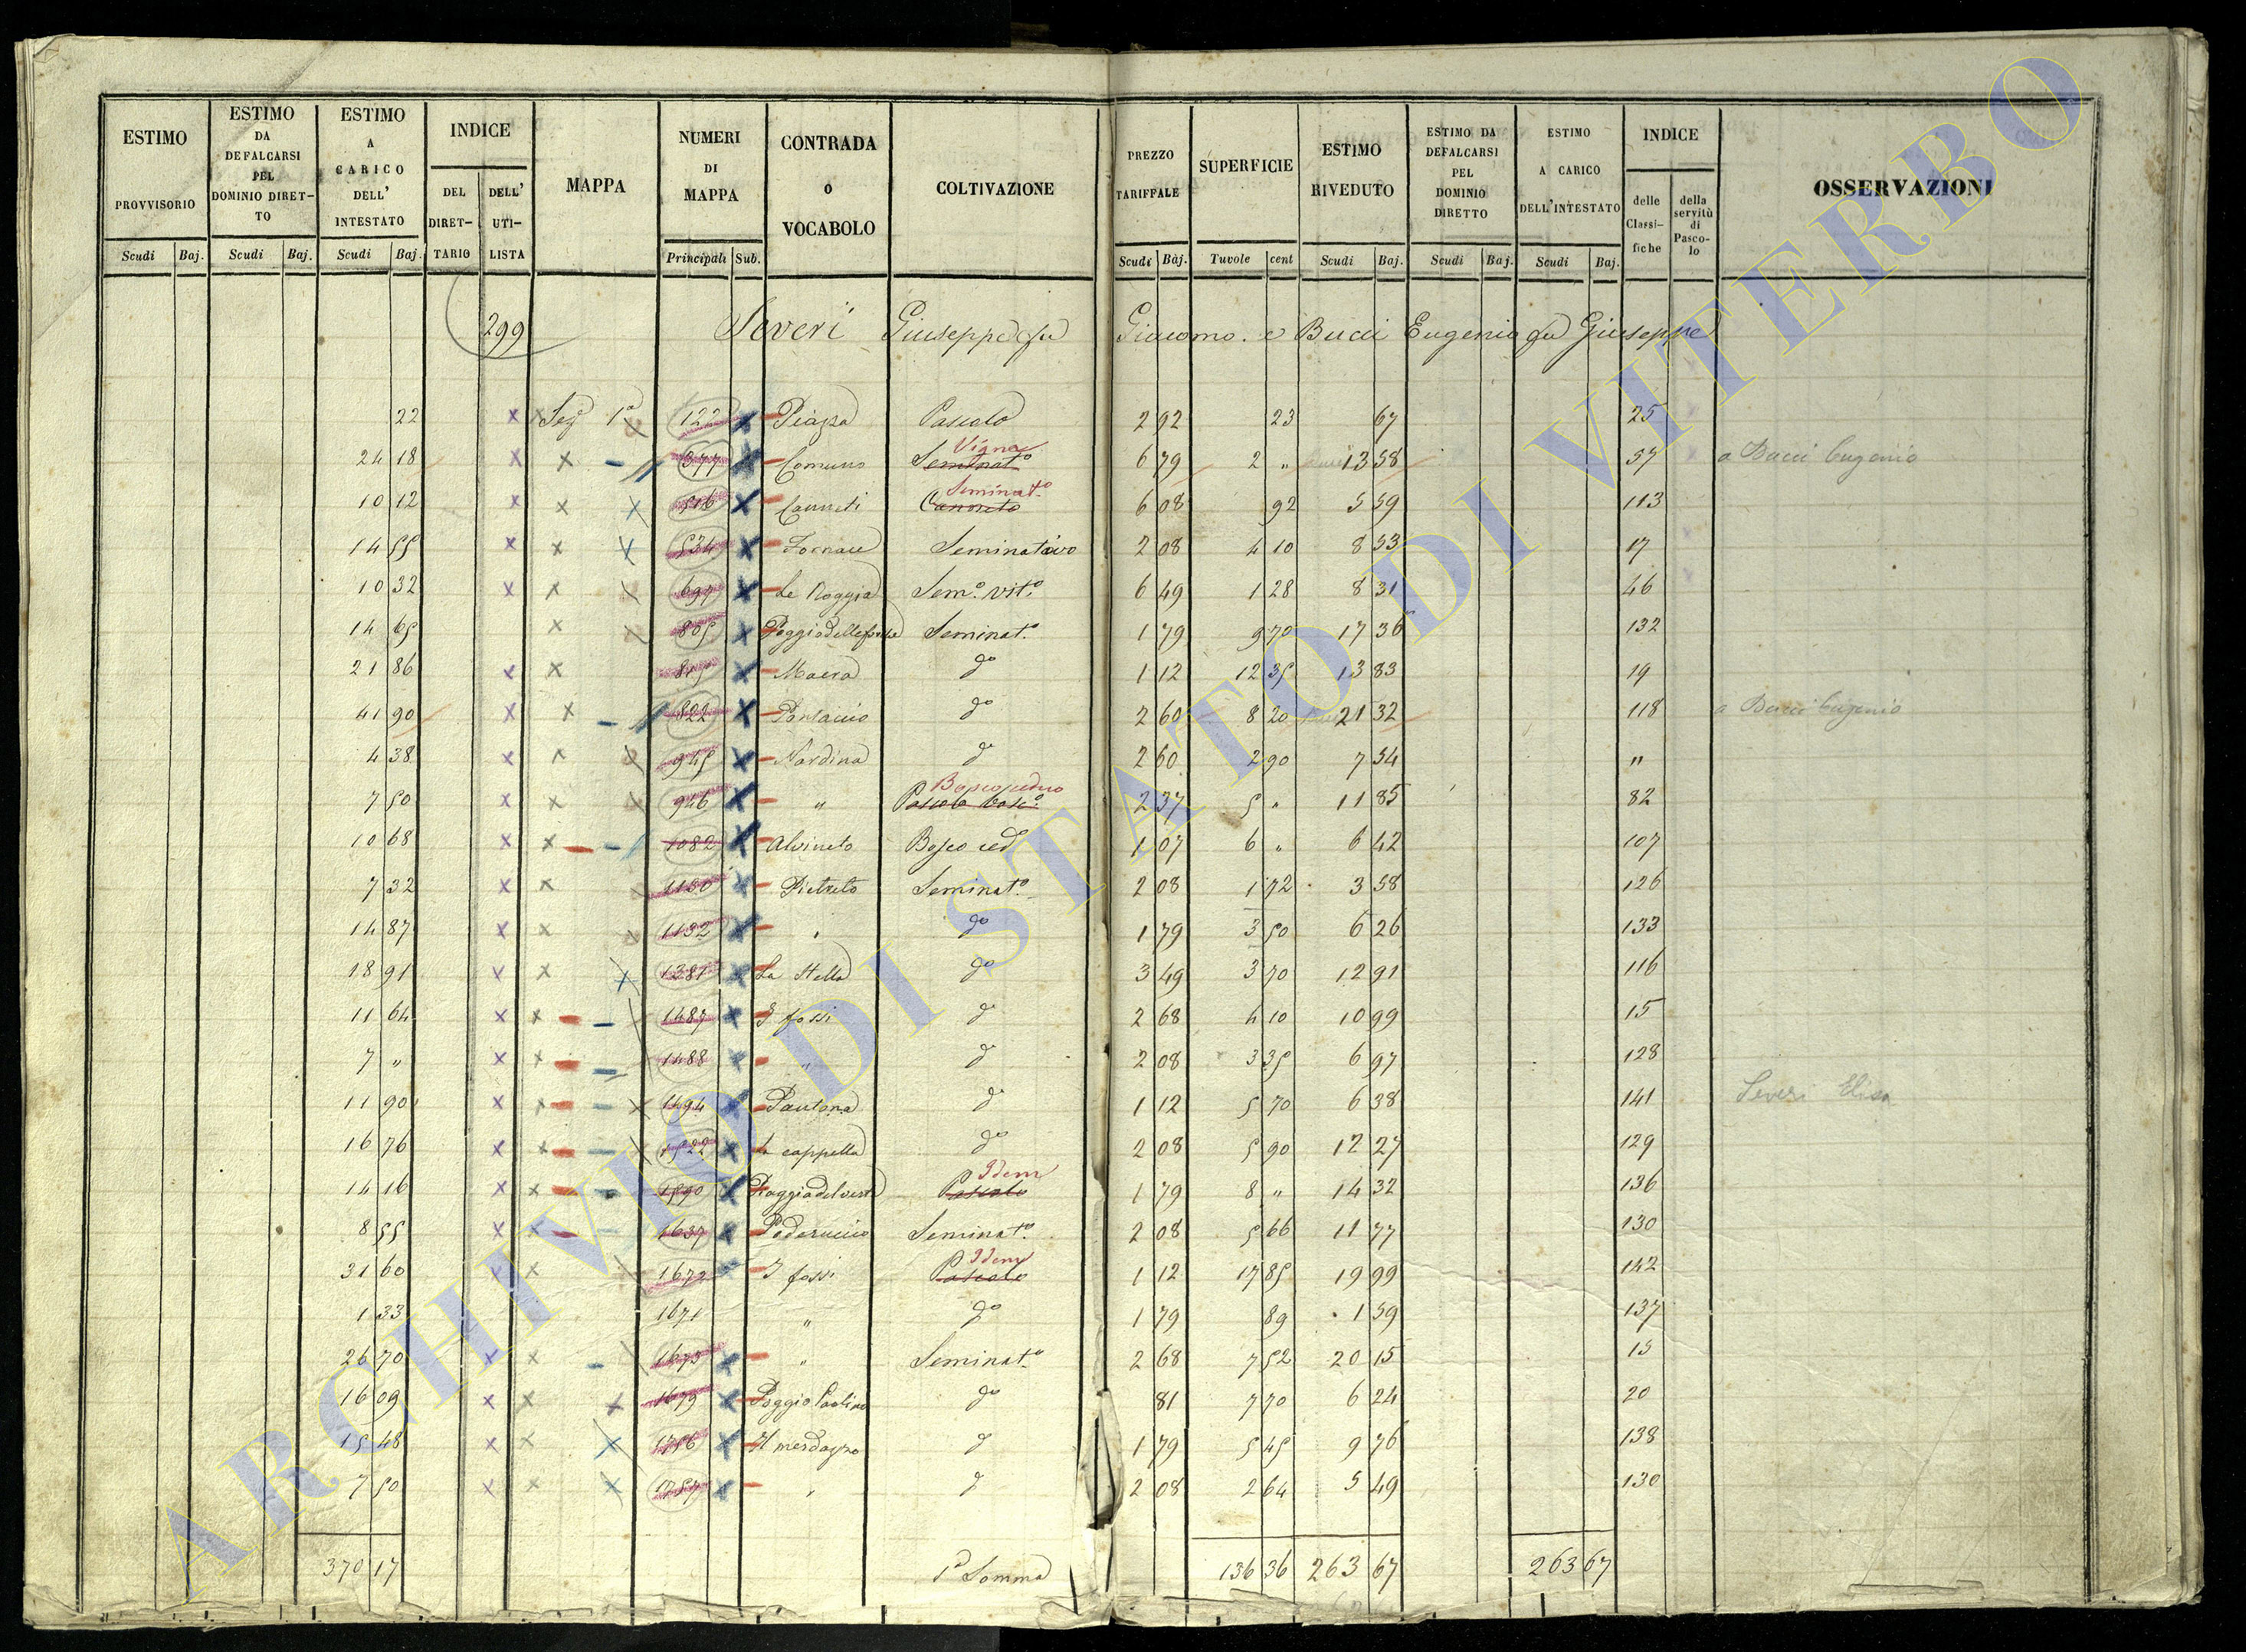 ESTIMO PROVVISORIO Scudi Baj.
ESTIMO DA DEFALCARSI PEL DOMINIO DIRET-TO Scudi Baj.
ESTIMO A CARICO DELL' INTESTATO Scudi Baj.
INDICE DEL DIRET-TARIO DELL' UTI-LISTA
MAPPA
NUMERI DI MAPPA Principali Sub.
CONTRADA O VOCABOLO
COLTIVAZIONE
PREZZO TARIFFALE Scudi Baj.
SUPERFICIE Tavole cent
ESTIMO RIVEDUTO Scudi Baj.
ESTIMO DA DEFALCARSI PEL DOMINIO DIRETTO Scudi Baj.
ESTIMO A CARICO DELL'INTESTATO Scudi Baj.
INDICE delle Classi-fiche della servitù di Pasco-lo
OSSERVAZIONI
299 Severi Giuseppe fu Giacomo e Bucci Eugenio fu Giuseppe
22 Sez.e 1a 122 Piazza Pascolo 2 92 23 67 25
24 18 377 Comuno Seminat.o Vigna 6 79 2 " 13 58 57 a Bucci Eugenio
10 12 516 Canneti Canneto Seminat.o 6 08 92 5 59 113
14 55 534 Fornace Seminativo 2 08 4 10 8 53 17
10 32 697 Le Roggia Sem.o vit.o 6 49 1 28 8 31 46
14 65 805 Poggio delle forche Seminat.o 1 79 9 70 17 36 132
21 86 815 Macra do 1 12 12 35 13 83 19
41 90 822 Pantaccio do 2 60 8 20 21 32 118 a Bucci Eugenio
4 38 945 Nardina do 2 60 2 90 7 54 "
7 50 946 " Pascolo bosc.o Bosco ceduo 2 37 5 " 11 85 82
10 68 1082 Alvineto Bosco ced 1 07 6 " 6 42 107
7 32 1130 Pietreto Seminat.o 2 08 1 72 3 58 126
14 87 1132 " do 1 79 3 50 6 26 133
18 91 1381 La Stella do 3 49 3 70 12 91 116
11 64 1487 I fossi do 2 68 4 10 10 99 15
7 " 1488 " do 2 08 3 35 6 97 128
11 90 1494 Pantana do 1 12 5 70 6 38 141 Severi Elisa
16 76 1522 La cappella do 2 08 5 90 12 27 129
14 16 1590 Pascolo Idem 1 79 8 " 14 32 136
8 55 1637 Pederuccio Seminat.o 2 08 5 66 11 77 130
31 60 1672 I fossi Pascolo Idem 1 12 17 85 19 99 142
1 33 1671 " do 1 79 89 1 59 137
26 70 1675 " Seminat.o 2 68 7 52 20 15 15
16 09 1679 Poggio Paolino do 81 7 70 6 24 20
15 48 1756 do 1 79 5 45 9 76 138
7 50 1757 " do 2 08 2 64 5 49 130
370 17 1a Somma 136 36 263 67 263 67
ARCHIVIO DI STATO DI VITERBO